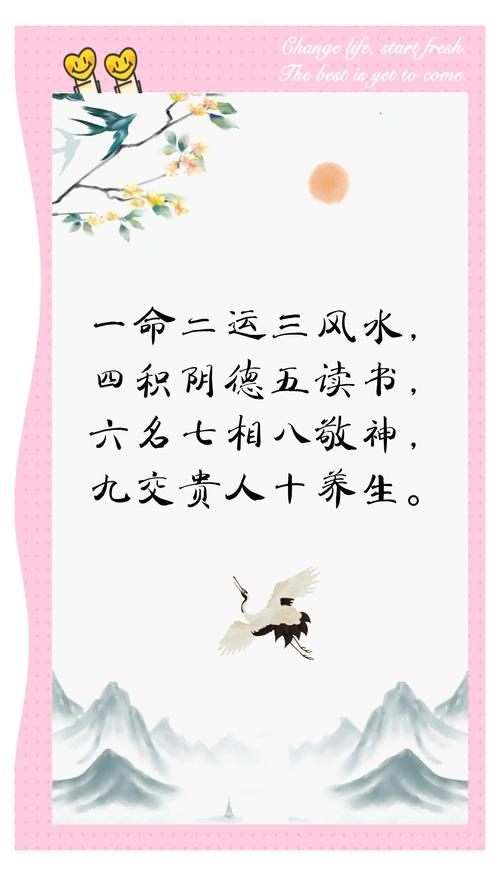 Change life, start fresh.
The best is yet to come.
一命二运三风水，
四积阴德五读书，
六名七相八敬神，
九交贵人十养生。